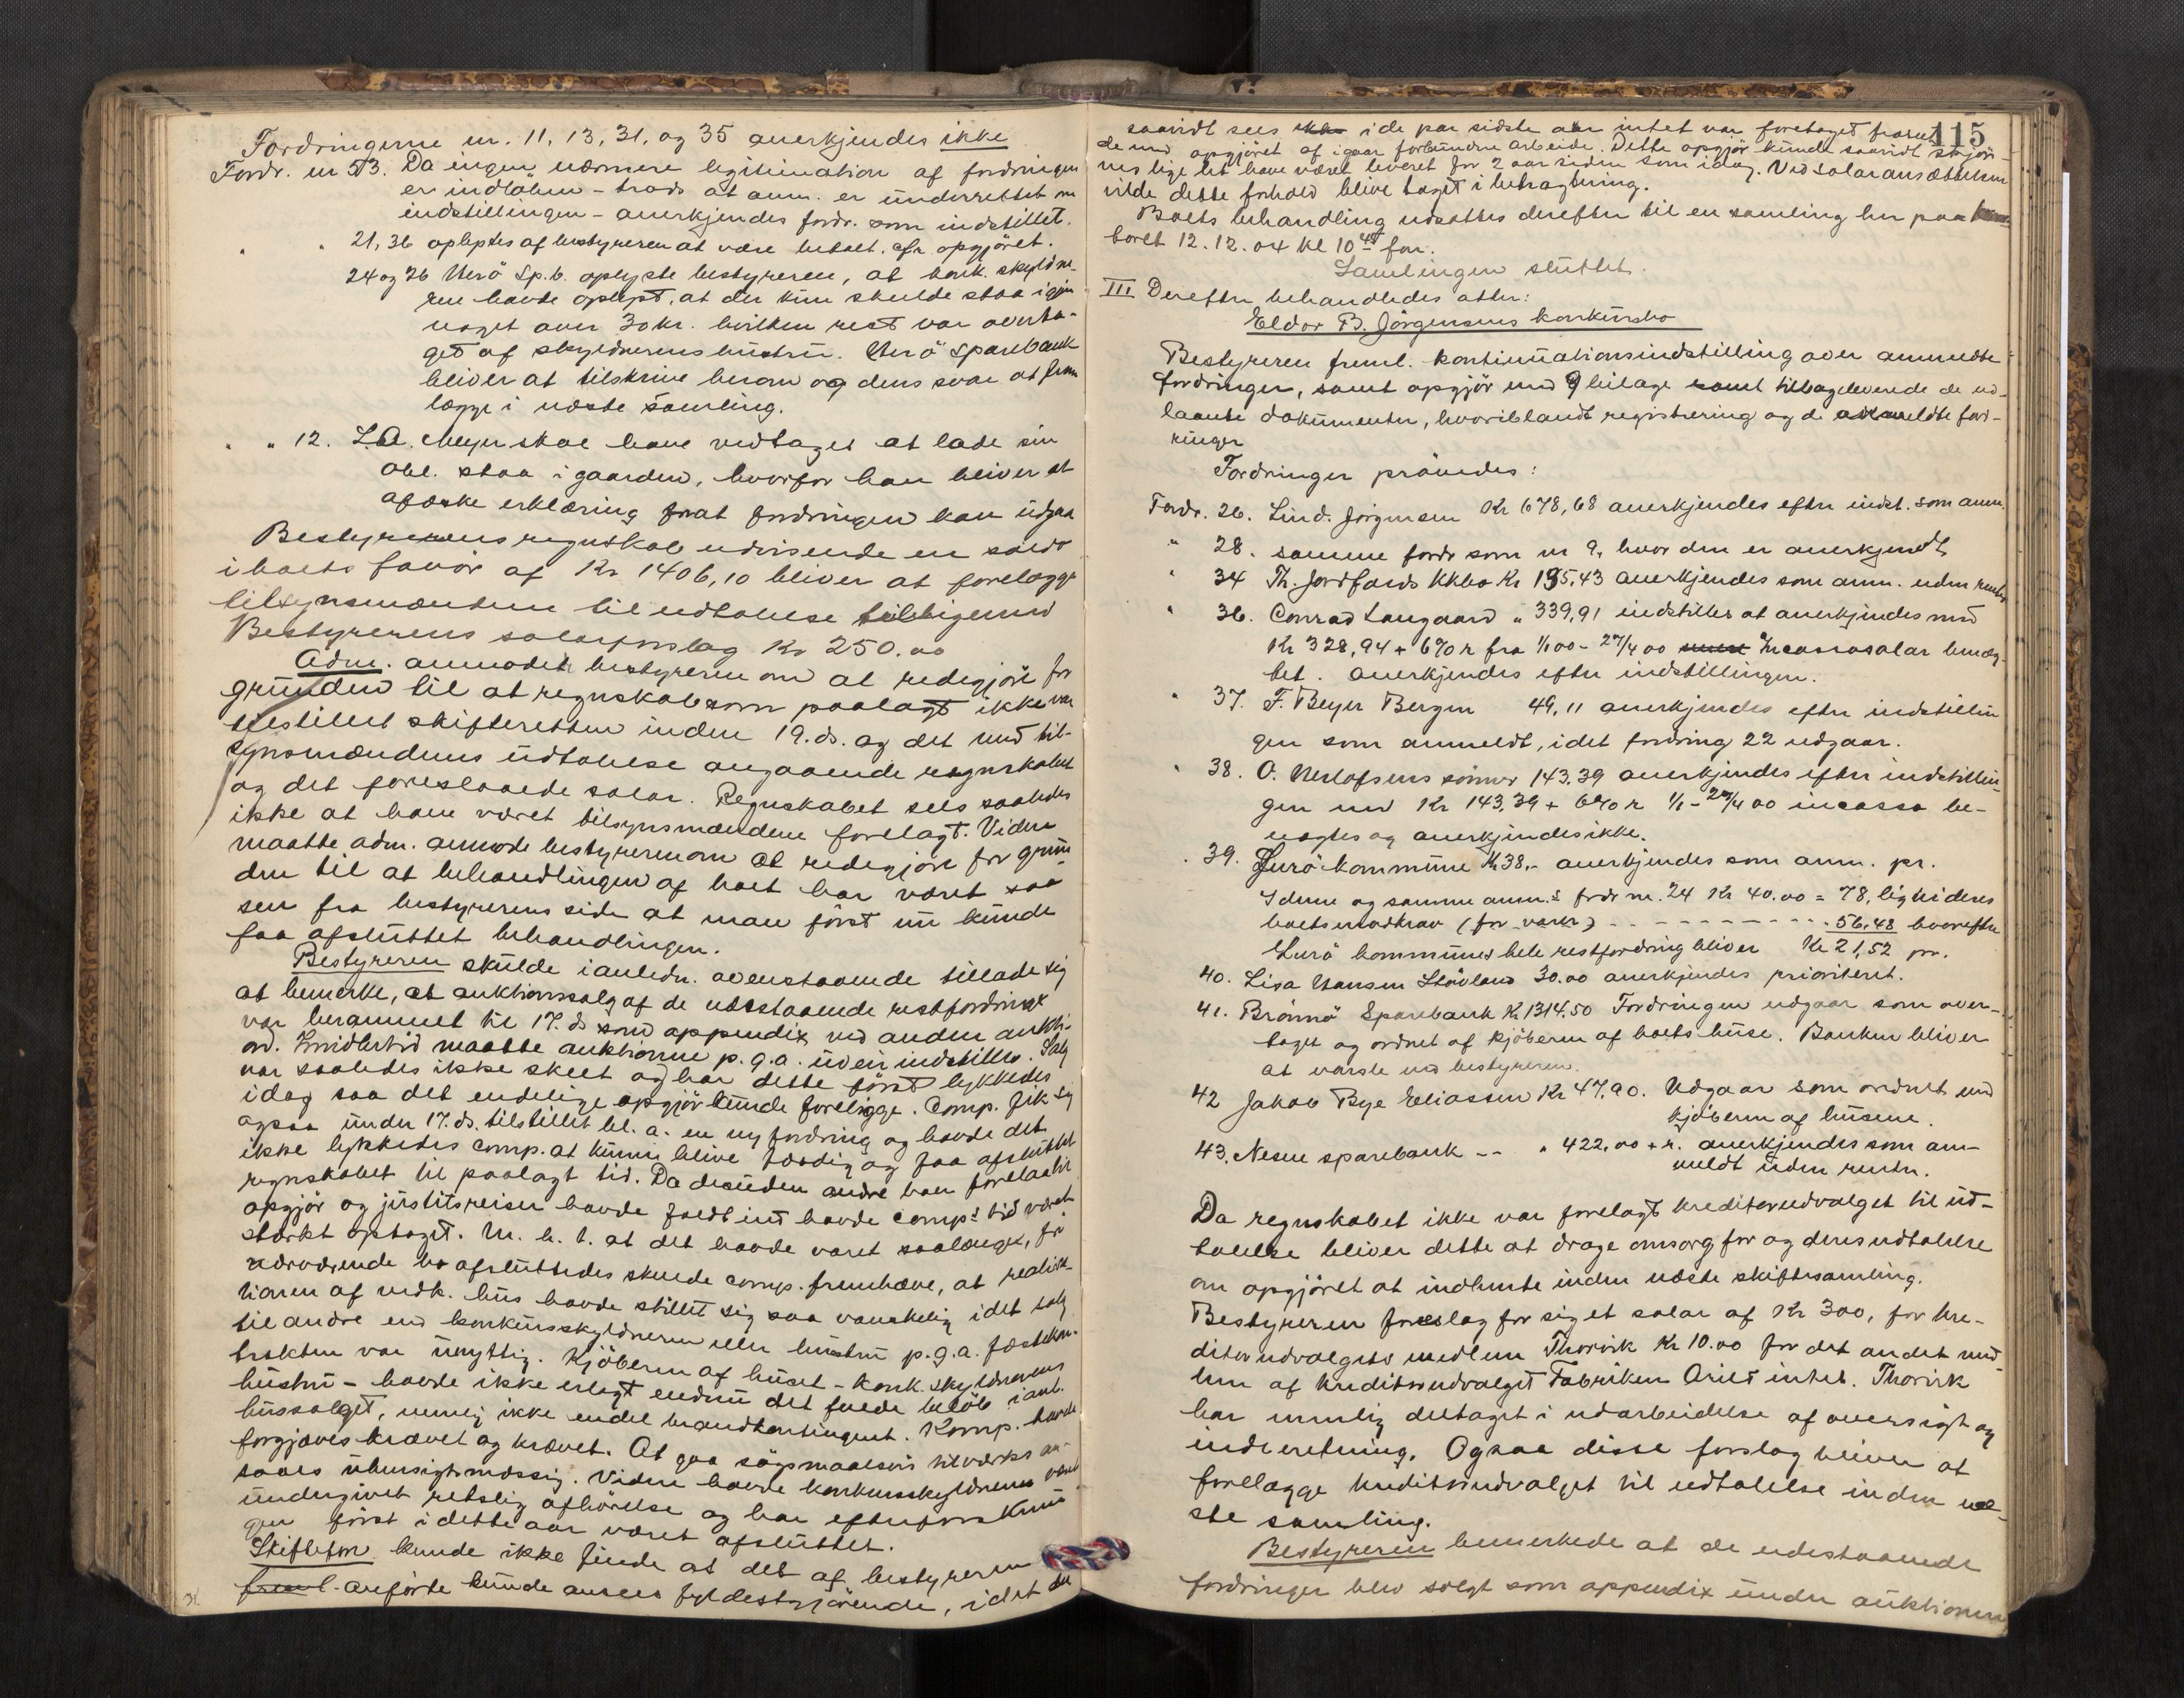 Fordringerne nr. 11, 13, 31, og 35 anerkjendes ikke
Fordr. nr 3. Da ingen nærmere legitimation af fordringen
er indløben - trods at anm. er underrettet om
indstillingen - anerkjendes fordr. som indstillet.
" " 21, 36 oplystes af bestyreren at være betalt. cfr. opgjøret.
24 og 26 Herø Sp.b. oplyste bestyreren, at konk. skyldne-
ren havde oplyst, at der kun skulde staa igjen
noget over 30 kr. hvilken rest var overta-
get af skyldnerens hustru. Herø Sparebank
bliver at tilskrive herom og dens svar at frem
lægge i næste samling.
" " 12. I.A. Meyer skal have vedtaget at lade sin
obl. staa i gaarden, hvorfor han bliver at
afæske erklæring for at fordringen kan udgaa
Bestyrerens regnskab udvisende en saldo
i boets favør af Kr 1406,10 bliver at forelægge
tilsynsmændene til udtalelse tilligemed
Bestyrerens salærforslag Kr 250.00
Adm. anmodet bestyreren om at redegjøre for
grunden til at regnskab som paalagt ikke var
tilstillet skifteretten inden 19. ds. og det med til-
synsmændenes udtalelse angaaende regnskabet
og det foreslaaede salær. Regnskabet sees saaledes
ikke at have været tilsynsmændene forelagt. Videre
maatte adm. anmode bestyreren om at redegjøre for grun-
den til at behandlingen af boet har været saa
sen fra bestyrerens side at man først nu kunde
faa afsluttet behandlingen.
Bestyreren skulde i anledn. ovenstaaende tillade sig
at bemerke, at auktionssalg af de udestaaende restfordringer
var berammet til 17. ds som appendix ved anden aukti-
on. Imidlertid maatte auktionen p. g. a. uveir indstilles. Salg
var saaledes ikke skeet og har dette først lykkedes
idag saa det endelige opgjør kunde foreligge. Comp. fik sig
ogsaa under 17. ds. tilstillet bl. a. en ny fordring og havde det
ikke lykkedes comp. at kunne blive færdig og faa afsluttet
regnskabet til paalagt tid. Da desuden andre
opgjør og justitsreiser havde faldt ind havde comp.s tid været
stærkt optaget. M. h. t. at det havde varet saalænge, før
nærværende bo afsluttedes skulde comp. fremhæve, at realisa-
tionen af vedk. hus havde stillet sig saa vanskelig idet salg
til andre end konkursskyldneren eller hustru p. g. a. fæstekon-
trakten var unyttig. Kjøberen af huset - konk. skyldnerens
hustru - havde ikke erlagt endnu det fulde beløb i anl.
hussalget, nemlig ikke endel brandkontingent. Komp. havde
forgjæves krævet og krævet. At gaa søgsmaalsvis tilværks an-
saaes uhensigtsmæssig. Videre havde konkursskyldneren været
undergivet retslig afhørelse og har efterforsknin-
gen først i dette aar været afsluttet.
Skifteform. kunde ikke finde at det af bestyreren
anførte kunde ansees fyldestgjørende, idet der
115
saavidt sees i de par sidste aar intet var foretaget
de med opgjøret af igaar forbundne arbeide. Dette opgjør kunde saavidt skjøn-
nes lige let have været leveret for 2 aar siden som idag. Ved salæransættelsen
vilde dette forhold blive taget i betragtning.
Boets behandling udsattes derefter til en samling her paa
boret 12.12.04 kl 10 for.
Samlingen sluttet.
III Derefter behandledes atter:
Eldor B. Jørgensens konkursbo
Bestyreren freml. kontinuationsindstilling over anmeldte
fordringer, samt opgjør med 9 bilage samt tilbageleverede de ud-
laante dokumenter, hvoriblandt registrering og de anmeldte ford-
ringer
Fordringer prøvedes:
Fordr. 26. Lind. Jørgensen Kr 678,68 anerkjendes efter indst. som anm.
" 28. samme fordr som nr 9, hvor den er anerkjendt
" 34 Th. Jordfalds kkbo Kr 195,43 anerkjendes som anm. uden renter
" 36. Conrad Langaard " 339,91 indstilles at anerkjendes med
Kr 328,94 + 6% r fra 1/1 00 - 27/4 00 Incassosalær benæg-
tet. Anerkjendes efter indstillingen.
" 37. F. Beyer Bergen 49,11 anerkjendes efter indstillin
gen som anmeldt, idet fordring 22 udgaar.
" 38. O. Nerlofsens sønner 143,39 anerkjendes efter indstillin-
gen med Kr 143,39 + 6% r 1/1 - 27/4 00 incasso be-
nægtes og anerkjendes ikke.
" 39. Lurø kommune Kr 38,- anerkjendes som anm. pr.
I denne og samme anm.s fordr nr. 24 Kr 40.00 = 78, ligvideres
boets modkrav (for varer) - - - - - - - - - 56,48 hvorefter
Lurø kommunes hele restfordring bliver Kr 21,52 pr.
40. Lisa Hansen Støvland 30.00 anerkjendes prioriteret.
41. Brønnø Sparebank K 1314.50 Fordringen udgaar som over-
taget og ordnet af kjøberen af boets huse. Banken bliver
at varsle ved bestyreren.
42 Jakob Bye Eliassen Kr 47,90. Udgaar som ordnet med
kjøberen af husene.
43. Nesne sparebank -- " 422,00 + r. anerkjendes som an-
meldt uden renter.
Da regnskabet ikke var forelagt kreditorudvalget til ud-
talelse bliver dette at drage omsorg for og deres udtalelse
om opgjøret at indhente inden næste skiftesamling.
Bestyreren foreslog for sig et salær af Kr 300, for kre-
ditorudvalgets medlem Thorvik Kr 10.00 for det andet med-
lem af kreditorudvalget Fabriken Ariet intet. Thorvik
har nemlig deltaget i udarbeidelse af oversigt og
indberetning. Ogsaa disse forslag bliver at
forelægge kreditorudvalget til udtalelse inden næ-
ste samling.
Bestyreren bemerkede at de udestaaende
fordringer blev solgt som appendix under auktionen